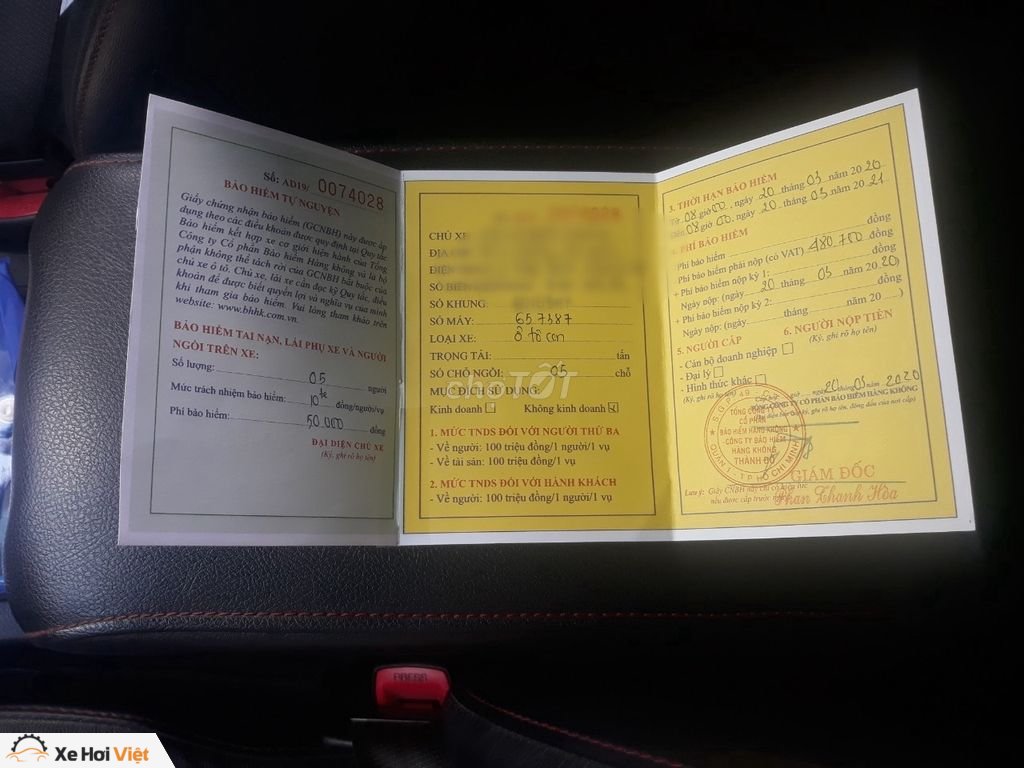 Số: AD19/ 0074028
BẢO HIỂM TỰ NGUYỆN
Giấy chứng nhận bảo hiểm (GCNBH) này được áp
dụng theo các điều khoản được quy định tại Quy tắc
Bảo hiểm kết hợp xe cơ giới hiện hành của Tổng
Công ty Cổ phần Bảo hiểm Hàng không và là bộ
phận không thể tách rời của GCNBH bắt buộc của
chủ xe ô tô. Chủ xe, lái xe cần đọc kỹ Quy tắc, điều
khoản để được biết quyền lợi và nghĩa vụ của mình
khi tham gia bảo hiểm. Vui lòng tham khảo trên
website: www.bhhk.com.vn.
BẢO HIỂM TAI NẠN, LÁI PHỤ XE VÀ NGƯỜI
NGỒI TRÊN XE:
Số lượng: 05 người
Mức trách nhiệm bảo hiểm: 10 tr đồng/người/vụ
Phí bảo hiểm: 50.000 đồng
ĐẠI DIỆN CHỦ XE
(Ký, ghi rõ họ tên)
CHỦ XE
ĐỊA
ĐIỆN
SỐ BIỂN
SỐ KHUNG:
SỐ MÁY: 657387
LOẠI XE: Ô tô con
TRỌNG TẢI: tấn
SỐ CHỖ NGỒI: 05 chỗ
MỤC ĐÍCH SỬ DỤNG:
Kinh doanh Không kinh doanh
1. MỨC TNDS ĐỐI VỚI NGƯỜI THỨ BA
- Về người: 100 triệu đồng/1 người/1 vụ
- Về tài sản: 100 triệu đồng/1 vụ
2. MỨC TNDS ĐỐI VỚI HÀNH KHÁCH
- Về người: 100 triệu đồng/1 người/1 vụ
3. THỜI HẠN BẢO HIỂM
Từ 08 giờ 00, ngày 20 tháng 03 năm 2020
Đến 08 giờ 00, ngày 20 tháng 03 năm 2021
4. PHÍ BẢO HIỂM
Phí bảo hiểm đồng
Phí bảo hiểm phải nộp (có VAT) 480.700 đồng
+ Phí bảo hiểm nộp kỳ 1: đồng
Ngày nộp: (ngày 20 tháng 03 năm 2020)
+ Phí bảo hiểm nộp kỳ 2: đồng
Ngày nộp: (ngày tháng năm 20 )
5. NGƯỜI CẤP
6. NGƯỜI NỘP TIỀN
(Ký, ghi rõ họ tên)
- Cán bộ doanh nghiệp
- Đại lý
- Hình thức khác
(Ký, ghi rõ họ tên)
giờ ngày 20 tháng 03 năm 2020
TỔNG CÔNG TY CỔ PHẦN BẢO HIỂM HÀNG KHÔNG
TỔNG CÔNG TY
CỔ PHẦN
BẢO HIỂM HÀNG KHÔNG
CÔNG TY BẢO HIỂM
HÀNG KHÔNG
THÀNH
QUẬN 1 - T.P HỒ CHÍ MINH
GIÁM ĐỐC
Phan Thanh Hòa
Lưu ý: Giấy CNBH này chỉ có hiệu lực
nếu được cấp trước
chợTỐT
PRESS
Xe Hơi Việt